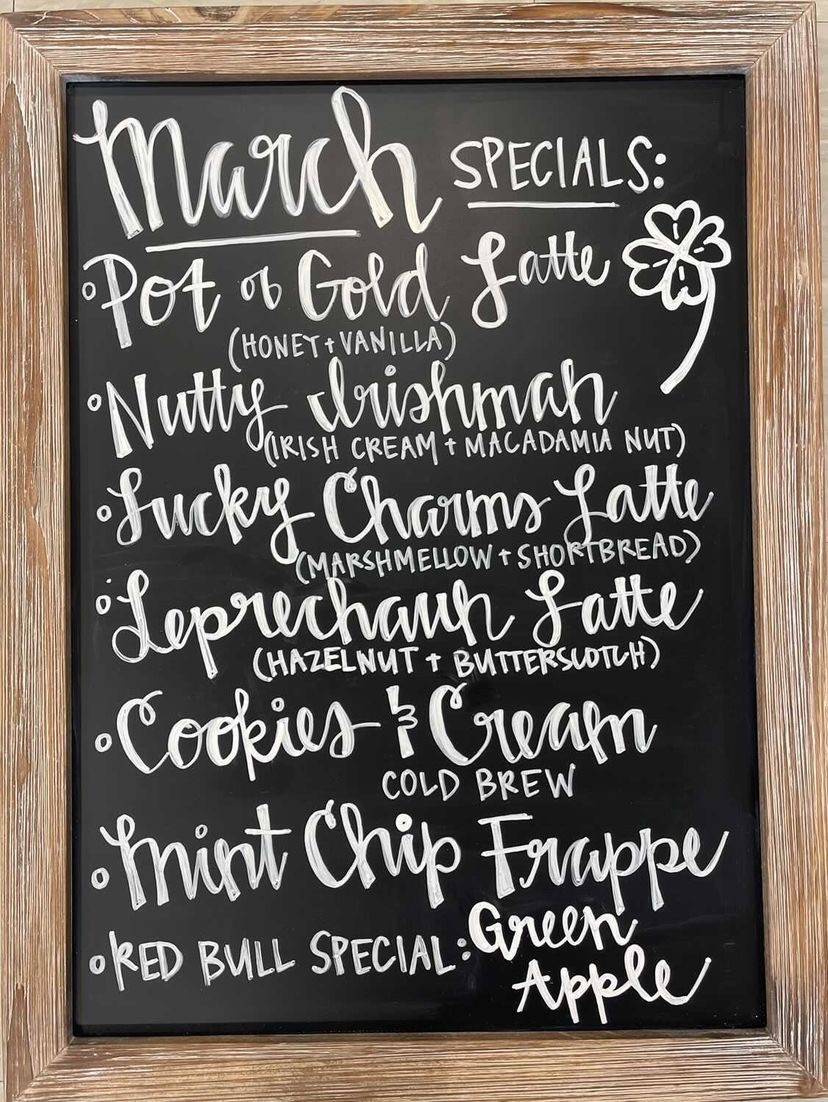 March SPECIALS:
Pot of Gold Latte
(HONEY + VANILLA)
Nutty Irishman
(IRISH CREAM + MACADAMIA NUT)
Lucky Charms Latte
(MARSHMELLOW + SHORTBREAD)
Leprechaun Latte
(HAZELNUT + BUTTERSCOTCH)
Cookies & Cream
COLD BREW
Mint Chip Frappe
RED BULL SPECIAL: Green
Apple